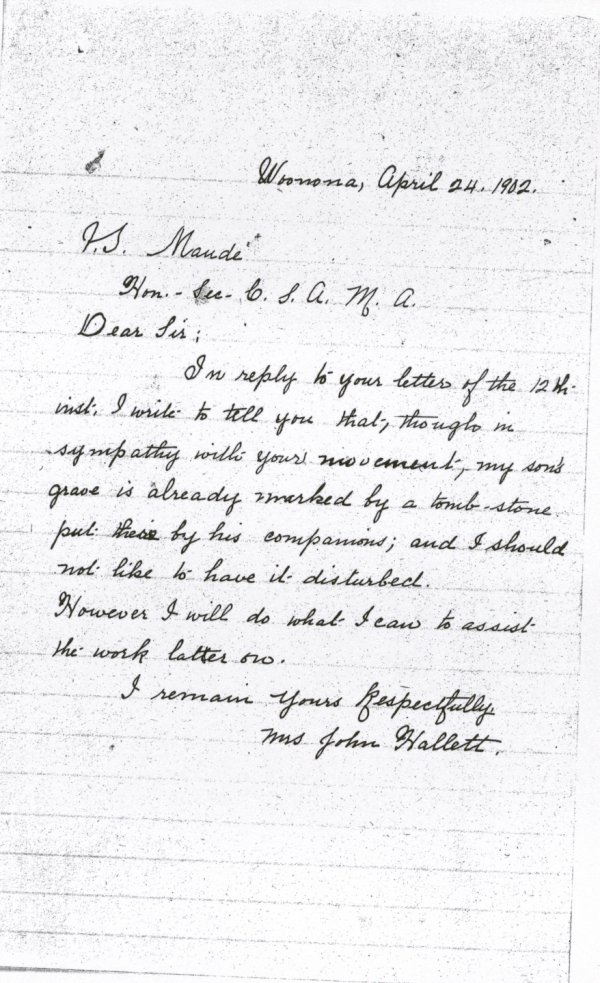 Woonona, April 24. 1902.
F. S. Maude
Hon. - Sec - C. S. A. M. A.
Dear Sir;
In reply to your letter of the 12th
inst. I write to tell you that, though in
sympathy with your movement, my son's
grave is already marked by a tomb-stone
put there by his companions; and I should
not like to have it disturbed.
However I will do what I can to assist
the work latter on.
I remain Yours Respectfully
Mrs John Hallett.